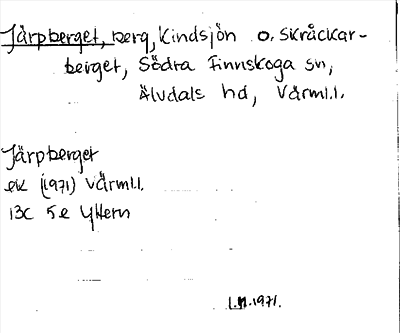 Järpberget, berg, Kindsjön o. Skråckar-
berget, Södra Finnskoga sn,
Älvdals hd, Värml.l.
Järpberget
ek (1971) Värml.l.
13C 5e Yttern
1.11.1971.